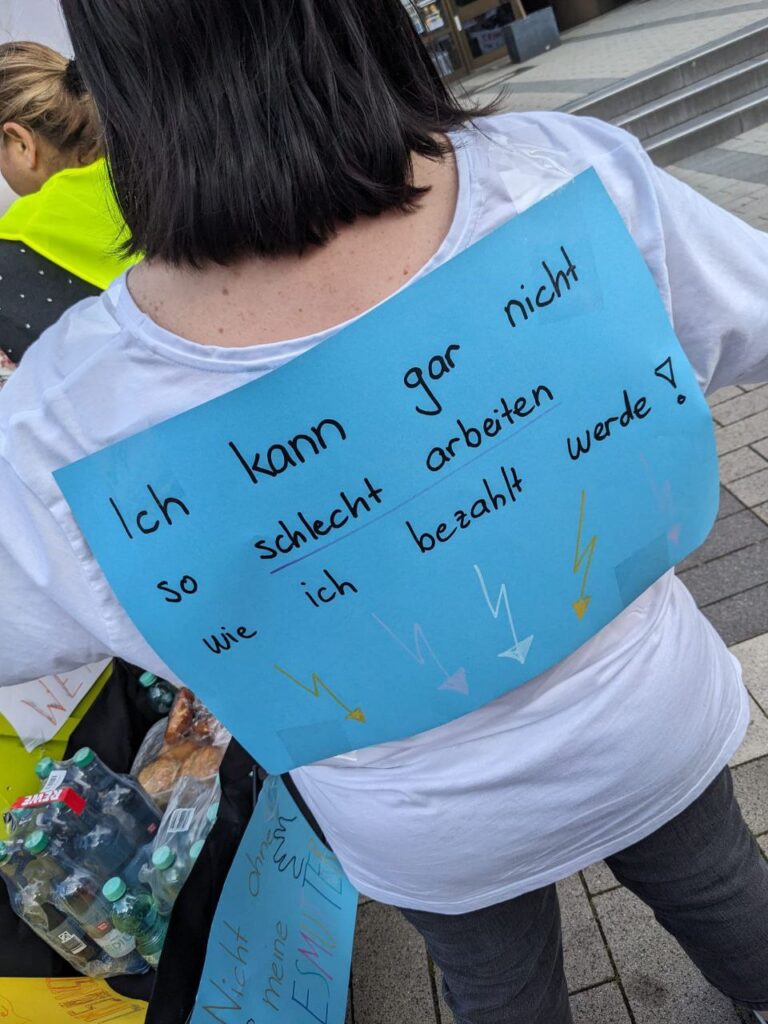 Ich kann gar nicht
so schlecht arbeiten
wie ich bezahlt werde!
WE
REWE
Nicht ohne
meine
ESMUTTER